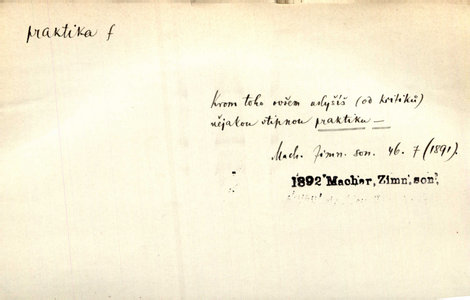 praktika f
Krom toho ovšem uslyšíš (od kritiků)
nějakou vtipnou praktiku —
Mach. Zimn. son. 46. 7 (1891).
1892 Machar, Zimn. son.